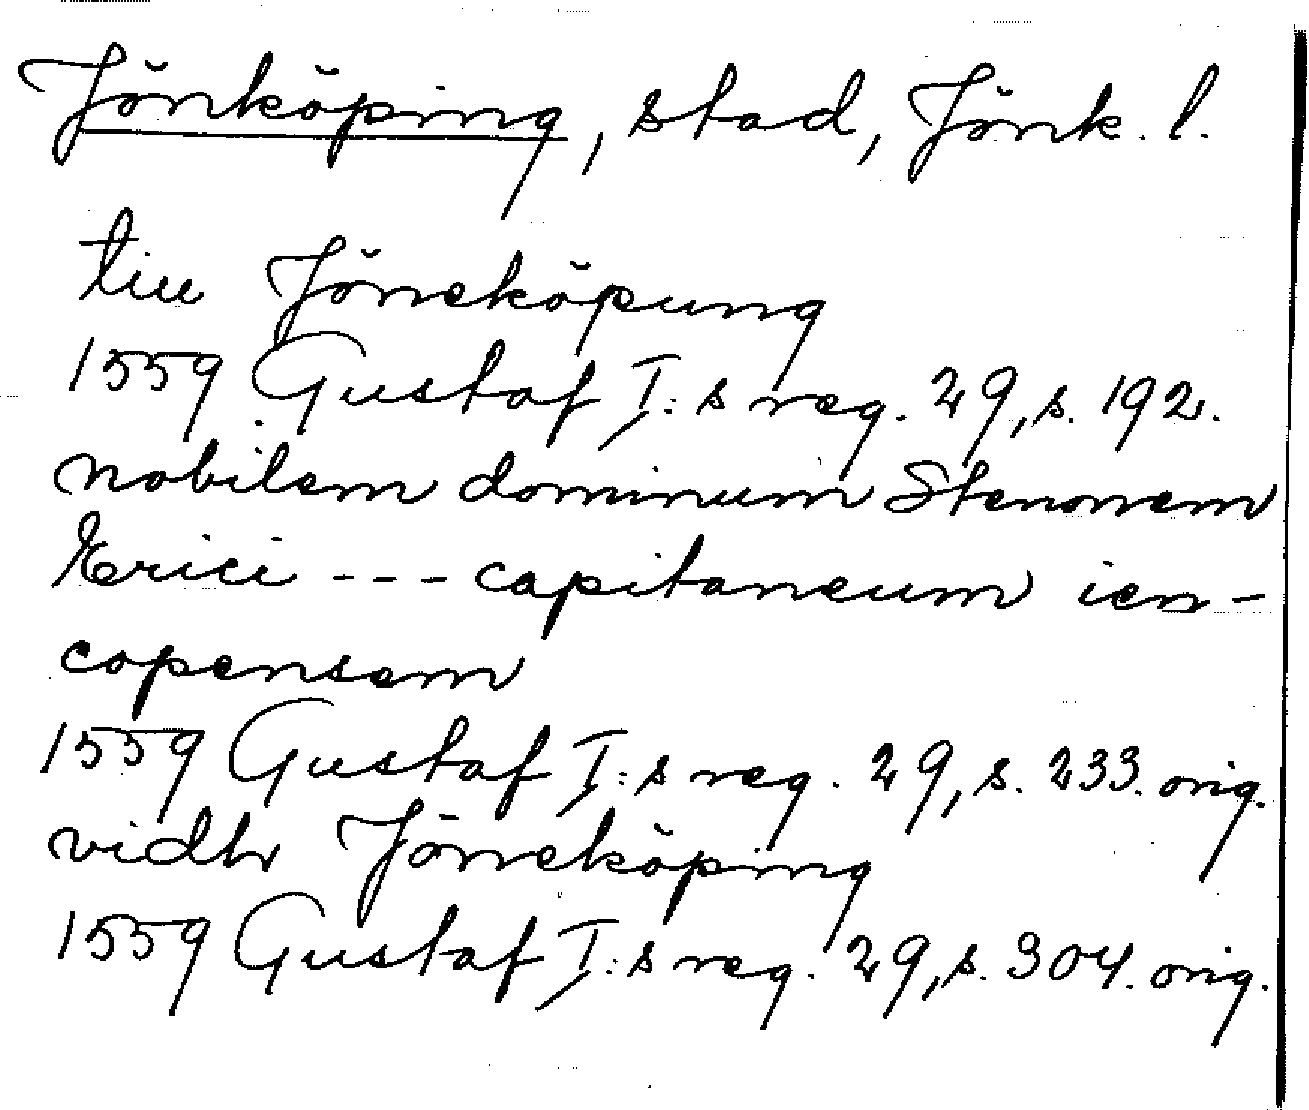 Jönköping, stad, Jönk. l.
till Jöneköpung
1559 Gustaf I:s reg. 29, s. 192.
nobilem dominum Stenonem
Erici --- capitaneum ien-
copensem
1559 Gustaf I:s reg. 29, s. 233. orig.
vidh Jöneköping
1559 Gustaf I:s reg. 29, s. 304. orig.